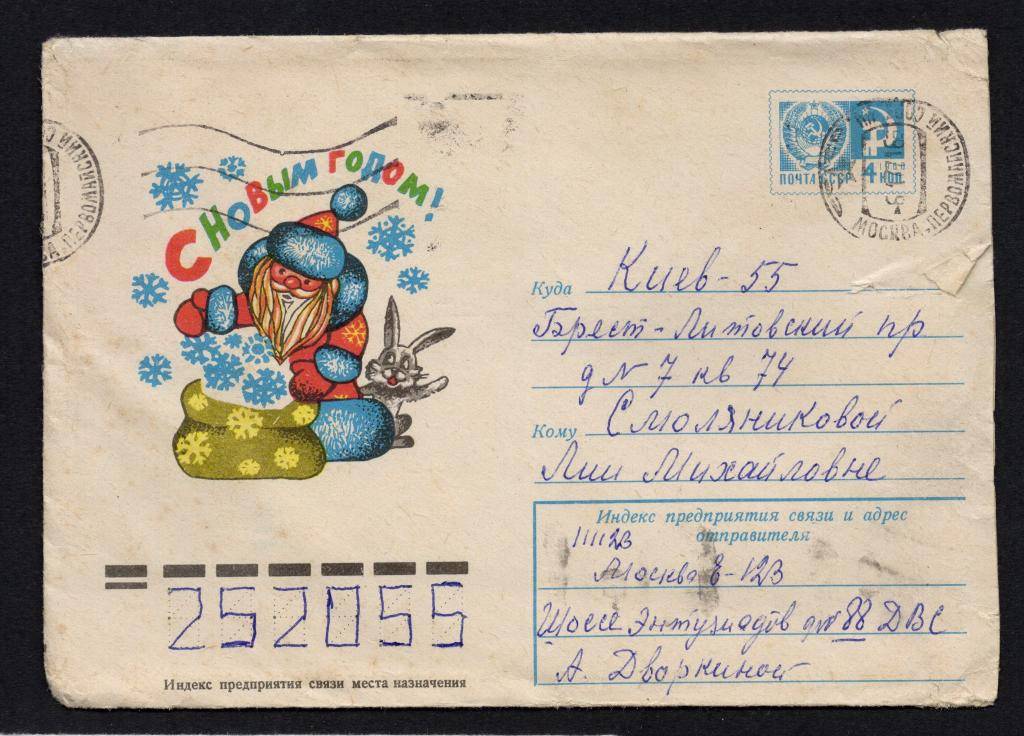 С НОВЫМ ГОДОМ!
ПОЧТА СССР 4 КОП
МОСКВА-ПЕРВОМАЙСКИЙ СО
МОСКВА-ПЕРВОМАЙСКИЙ СО
Куда Киев-55
Брест-Литовский пр
д N 7 кв 74
Кому Смоляниковой
Лии Михайловне
Индекс предприятия связи и адрес
отправителя
111123
Москва Е-123
Шоссе Энтузиадов 88 ДВС
А. Дворкиной
252055
Индекс предприятия связи места назначения